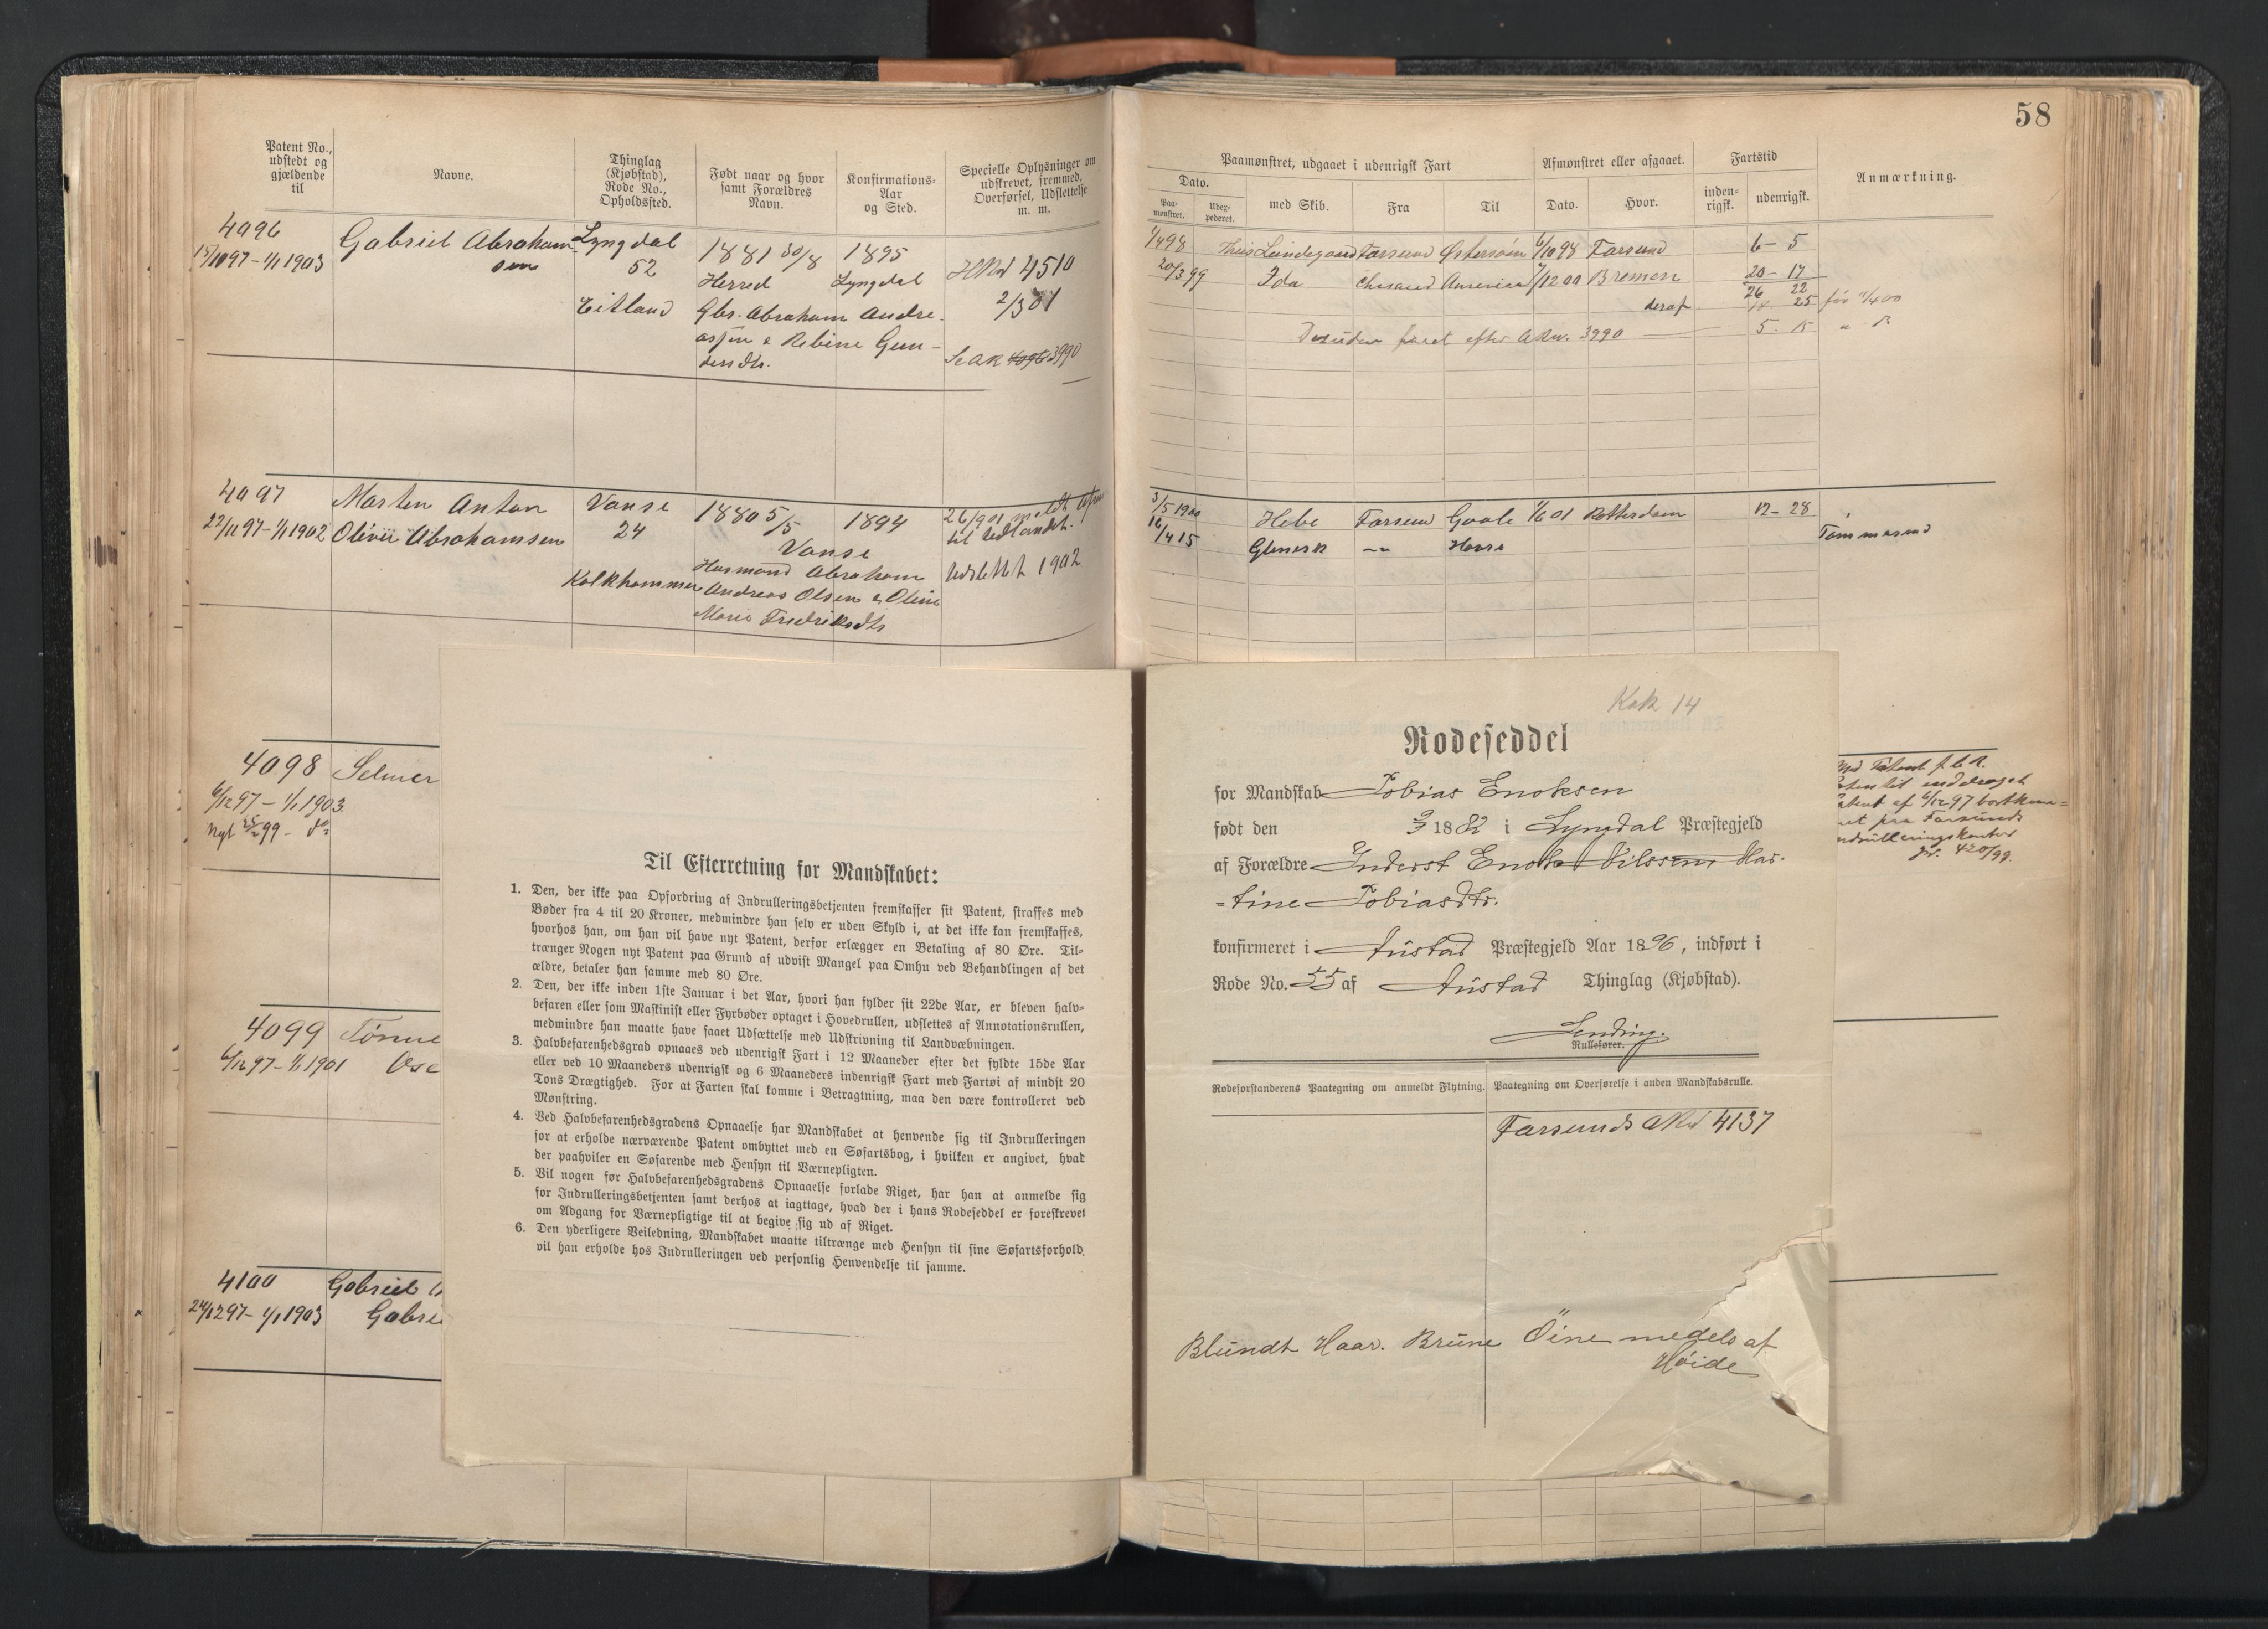 58
Patent No., udstedt og gjældende til
Navne.
Thinglag (Kjøbstad), Rode No., Opholdssted.
Født naar og hvor samt Forældres Navn.
Konfirmations- Aar og Sted.
Specielle Oplysninger om udskrevet, fremmed, Overførsel, Udslettelse m. m.
Paamønstret, udgaaet i udenrigsk Fart
Afmønstret eller afgaaet.
Fartstid
Anmærkning.
Dato.
Paa- mønstret.
Udex- pederet.
med Skib.
Fra
Til
Dato.
Hvor.
inden- rigsk.
udenrigsk.
4096 Gabriel Abraham- Lyngdal 1881 30/8 1895
97 - 1/1 1903 sen 52 Herred Lyngdal 4510
Eitland Gbr. Abraham Andre- 2/3 01
assen & Rebine Gun-
densdtr. Se AR 4096 3990
1/4 98 Farsund Østersøen 6/10 98 Farsund 6 - 5
20/3 99 Ida Chrsand America 7/12 00 Bremen 20 - 17
26 22
deraf 25 før
Desuden faret efter 3990 5 - 15
4097 Marten Anton Vanse 1880 5/5 1894 26/9 01 meldt
22/11 97 - 1/1 1902 Olivir Abrahamsen 24 Vanse til Udlandet.
Kalkhammer Husmand Abraham Udslettet 1902
Andreas Olsen & Oline
Marie Fredriksdtr
3/5 1900 Hebe Farsund Goole 1/6 01 Rotterdam 12 - 28
16/4 15 Havre Tømmermd
4098 Selmer
6/12 97 - 1/1 1903.
Nyt 25/2 99 -
Patentet inddraget
Patent af 6/12 97 bortkom=
met fra Farsunds
Indrulleringskontor
4099 Tønne
6/12 97 - 1/1 1901
4100 Gabriel
24/12 97 - 1/1 1903 Gabri
Til Efterretning for Mandskabet:
1. Den, der ikke paa Opfordring af Indrulleringsbetjenten fremskaffer sit Patent, straffes med
Bøder fra 4 til 20 Kroner, medmindre han selv er uden Skyld i, at det ikke kan fremskaffes,
hvorhos han, om han vil have nyt Patent, derfor erlægger en Betaling af 80 Øre. Til-
trænger Nogen nyt Patent paa Grund af udvist Mangel paa Omhu ved Behandlingen af det
ældre, betaler han samme med 80 Øre.
2. Den, der ikke inden 1ste Januar i det Aar, hvori han fylder sit 22de Aar, er bleven halv-
befaren eller som Maskinist eller Fyrbøder optaget i Hovedrullen, udslettes af Annotationsrullen,
medmindre han maatte have faaet Udsættelse med Udskrivning til Landvæbningen.
3. Halvbefarenhedsgrad opnaaes ved udenrigsk Fart i 12 Maaneder efter det fyldte 15de Aar
eller ved 10 Maaneders udenrigsk og 6 Maaneders indenrigsk Fart med Fartøi af mindst 20
Tons Drægtighed. For at Farten skal komme i Betragtning, maa den være kontrolleret ved
Mønstring.
4. Ved Halvbefarenhedsgradens Opnaaelse har Mandskabet at henvende sig til Indrulleringen
for at erholde nærværende Patent ombyttet med en Søfartsbog, i hvilken er angivet, hvad
der paahviler en Søfarende med Hensyn til Værnepligten.
5. Vil nogen før Halvbefarenhedsgradens Opnaaelse forlade Riget, har han at anmelde sig
for Indrulleringsbetjenten samt derhos at iagttage, hvad der i hans Rodeseddel er foreskrevet
om Adgang for Værnepligtige til at begive sig ud af Riget.
6. Den yderligere Veiledning, Mandskabet maatte tiltrænge med Hensyn til sine Søfartsforhold,
vil han erholde hos Indrulleringen ved personlig Henvendelse til samme.
Kok 14
Rodeseddel
for Mandskab Tobias Enoksen
født den 9/3 1882 i Lyngdal Præstegjeld
af Forældre Inderst Enok Nilssen, Mar-
-tine Tobiasdtr.
konfirmeret i Austad Præstegjeld Aar 1896, indført i
Rode No. 55 af Austad Thinglag (Kjøbstad).
Lending.
Rullefører.
Rodeforstanderens Paategning om anmeldt Flytning.
Paategning om Overførelse i anden Mandskabsrulle.
Farsunds 4137
Blundt Haar. Brune Öine medels af
Høide